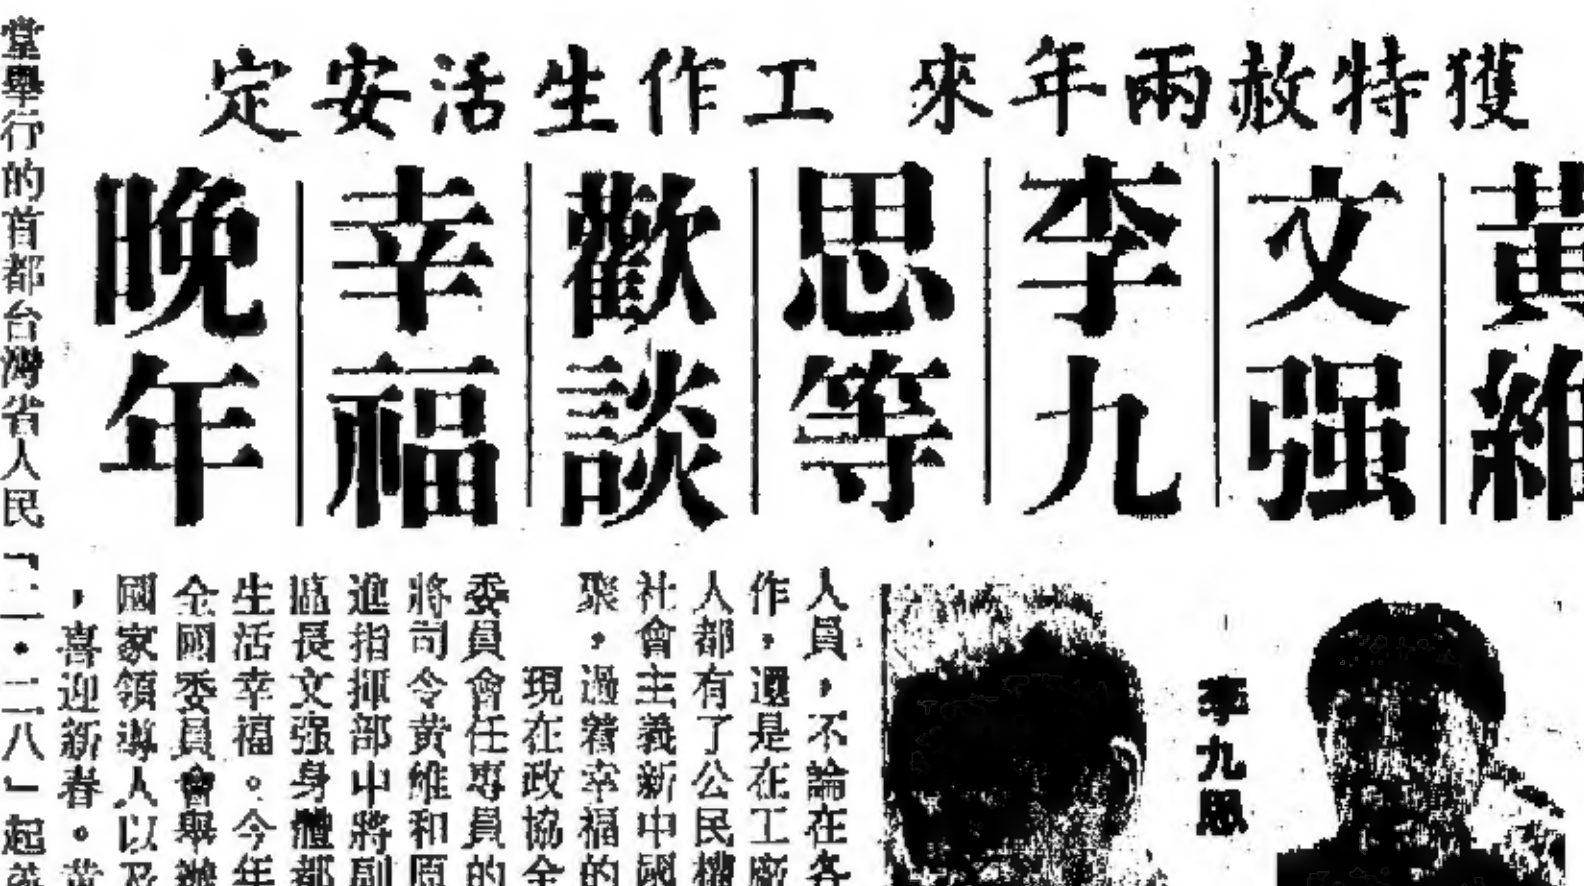 獲特赦兩年來 工作生活安定
黃維
文强
李九
思等
歡談
幸福
晚年
李九思
人員，不論在各
作，還是在工廠
人都有了公民權
社會主義新中國
聚，過着幸福的
現在政協全
委員會任專員的
將司令黃維和原
進指揮部中將副
區長文强身體都
生活幸福。今年
全國委員會舉辦
國家領導人以及
，喜迎新春。黃
堂舉行的首都台灣省人民「二·二八」起義